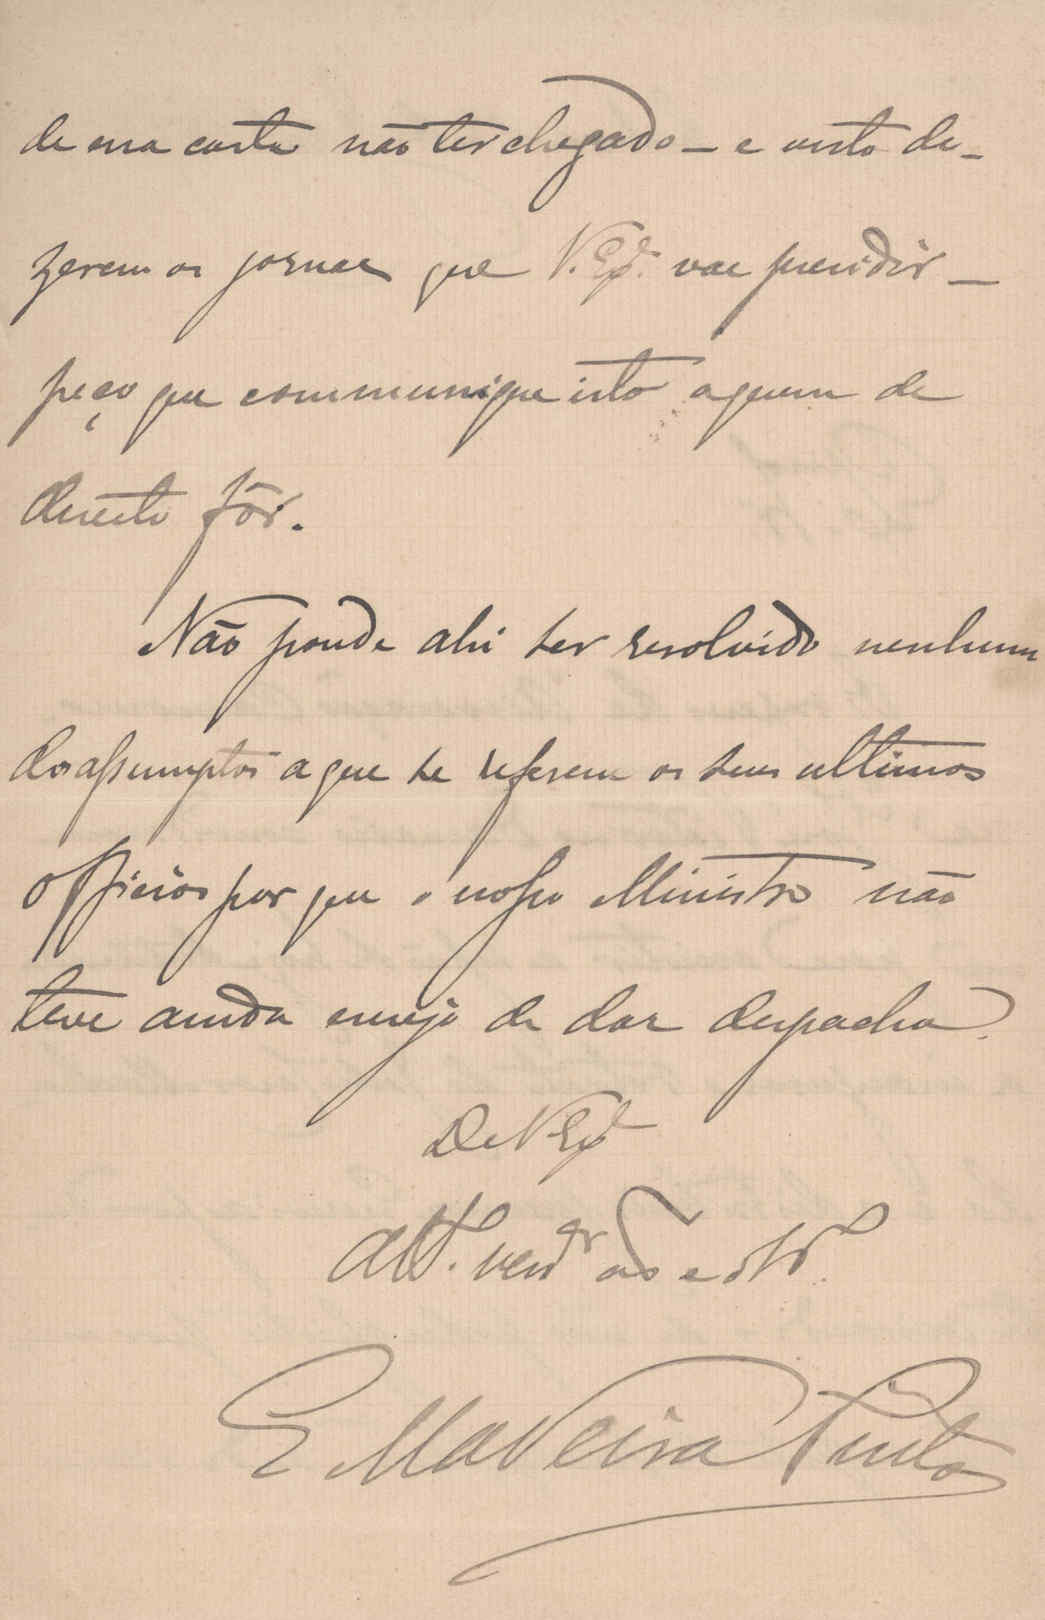 de essa carta não ter chegado — e visto di-
zerem os jornaes que V. Exª. vae presidir —
peço que communique isto a quem de
direito fôr.
Não poude ahi ser resolvido nenhum
dos assumptos a que se referem os seus ultimos
officios por que o nosso Ministro não
teve ainda ensejo de dar despacho.
De V Exª
Attº. venºr e obrº.
E Madeira Pinto